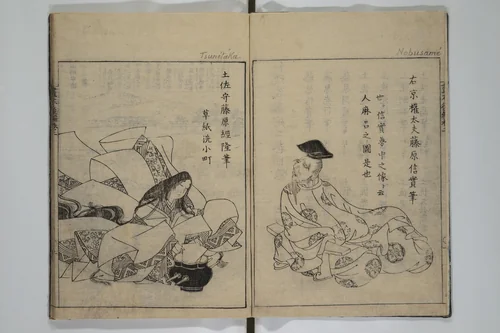 Nobusané
右京權太夫藤原信實筆
世信實夢中之像と云
人麻呂之圖是也
Tsunetaka
土佐守藤原經隆筆
草紙洗小町